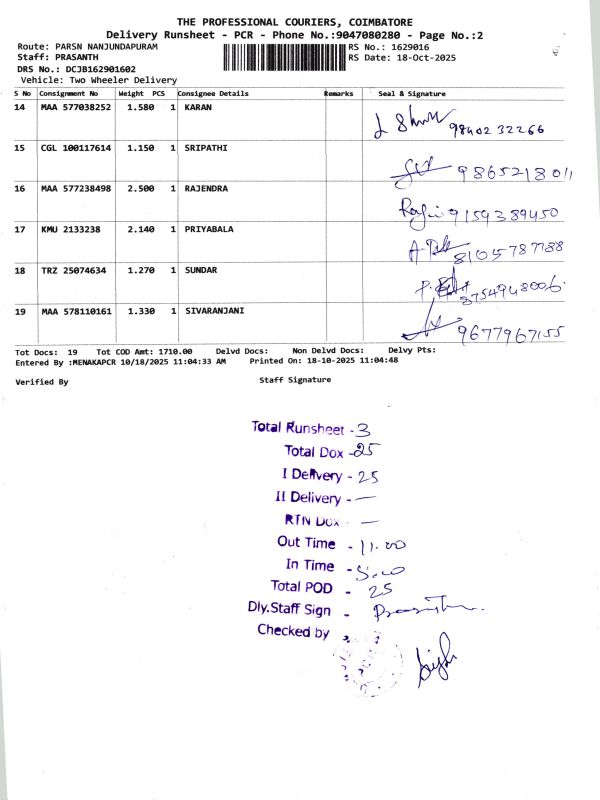 THE PROFESSIONAL COURIERS, COIMBATORE
Delivery Runsheet - PCR - Phone No.:9047080280 - Page No.:2
Route: PARSN NANJUNDAPURAM RS No.: 1629016
Staff: PRASANTH RS Date: 18-Oct-2025
DRS No.: DCJB162901602
Vehicle: Two Wheeler Delivery
S No Consignment No Weight PCS Consignee Details Remarks Seal & Signature
14 MAA 577038252 1.580 1 KARAN
9840232266
15 CGL 100117614 1.150 1 SRIPATHI
9865218011
16 MAA 577238498 2.500 1 RAJENDRA
9159389450
17 KMU 2133238 2.140 1 PRIYABALA
8105787788
18 TRZ 25074634 1.270 1 SUNDAR
8754948006
19 MAA 578110161 1.330 1 SIVARANJANI
9677967155
Tot Docs: 19 Tot COD Amt: 1710.00 Delvd Docs: Non Delvd Docs: Delvy Pts:
Entered By :MENAKAPCR 10/18/2025 11:04:33 AM Printed On: 18-10-2025 11:04:48
Verified By Staff Signature
Total Runsheet - 3
Total Dox - 25
I Delivery - 25
II Delivery - —
RTN Dox - —
Out Time - 11.00
In Time - 5.00
Total POD - 25
Dly.Staff Sign - Prasanth
Checked by -